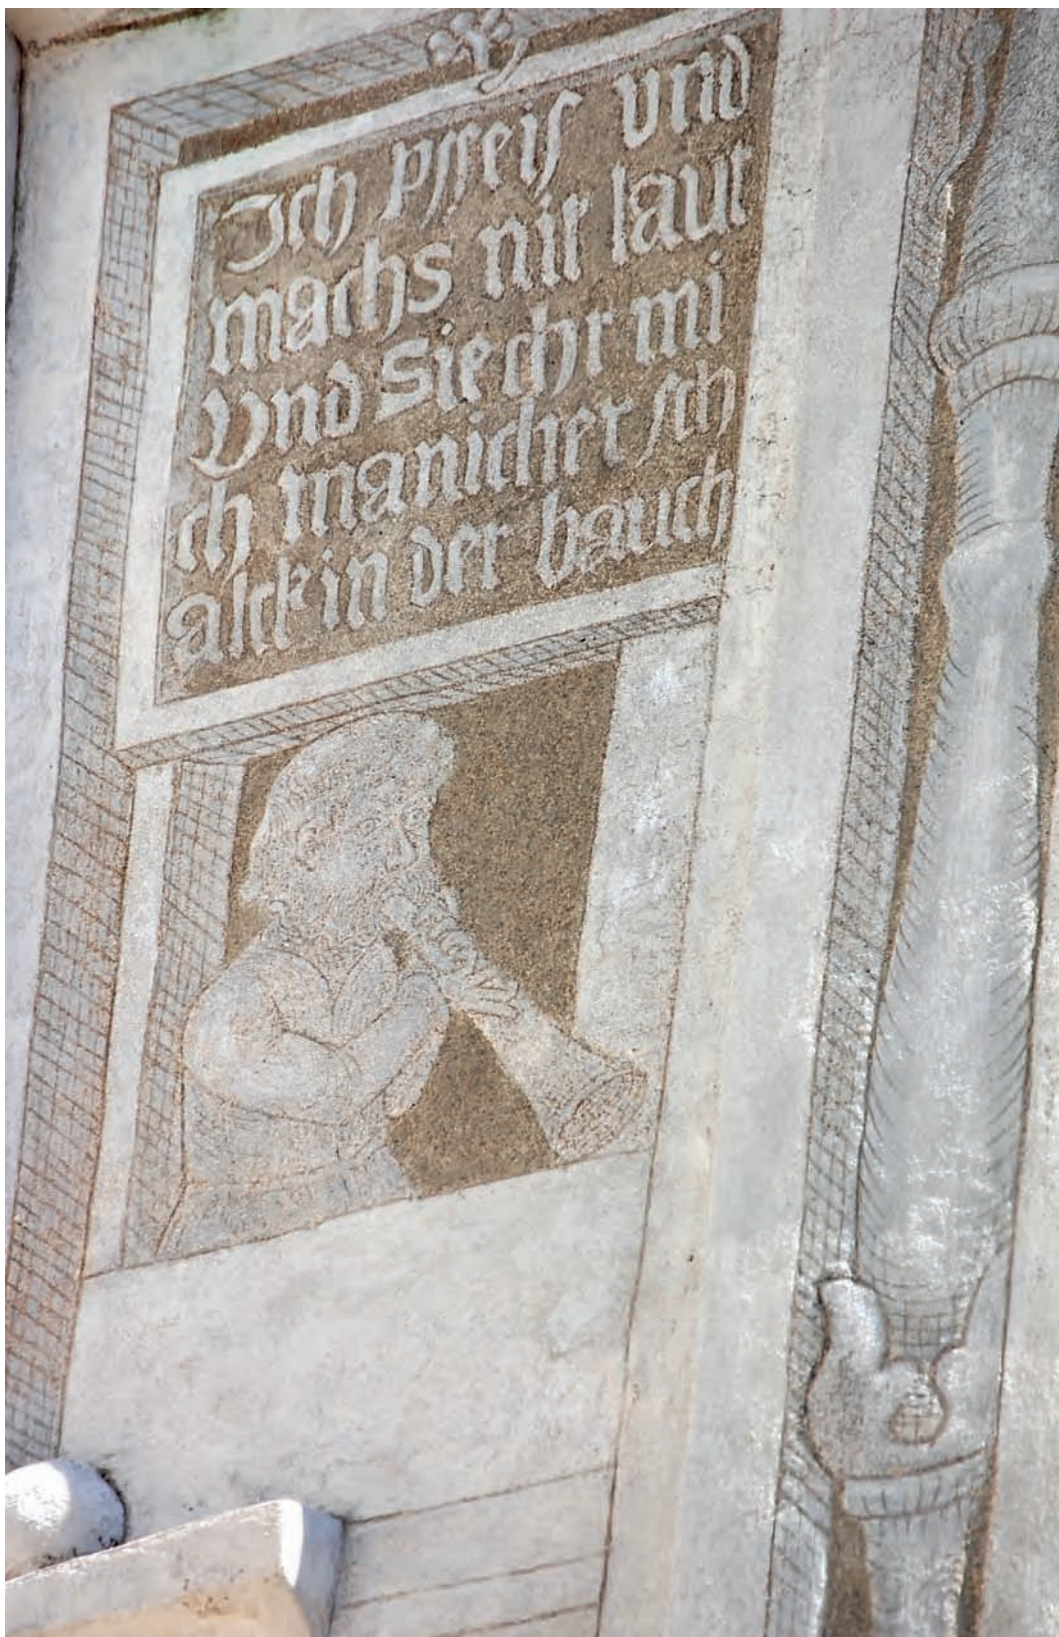 Ich pfeif und
machs nit laut
Vnd siecht mi
ch manicher sch
alck in der bauch